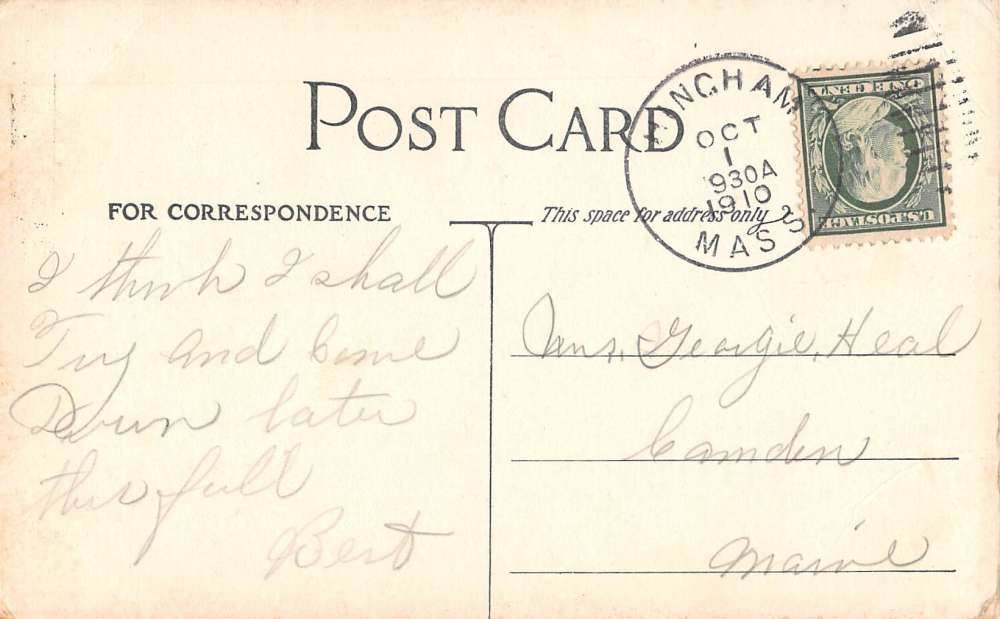 POST CARD
FOR CORRESPONDENCE
This space for address only
HINGHAM
OCT
1
930A
1910
MASS
ONE CENT
U.S. POSTAGE
I think I shall
Try and Come
Down later
this fall
Bert
Mrs. Georgie. Heal
Camden
Maine